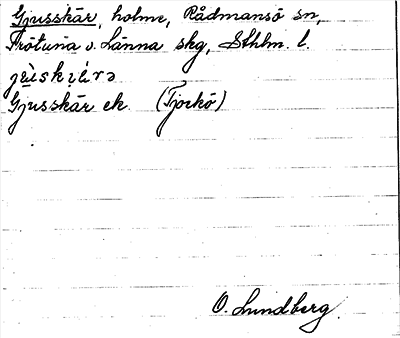 Gjusskär, holme, Rådmansö sn,
Frötuna o. Länna skg, Sthlm. l.
Gjusskär ek. (Tjockö)
O. Lundberg.